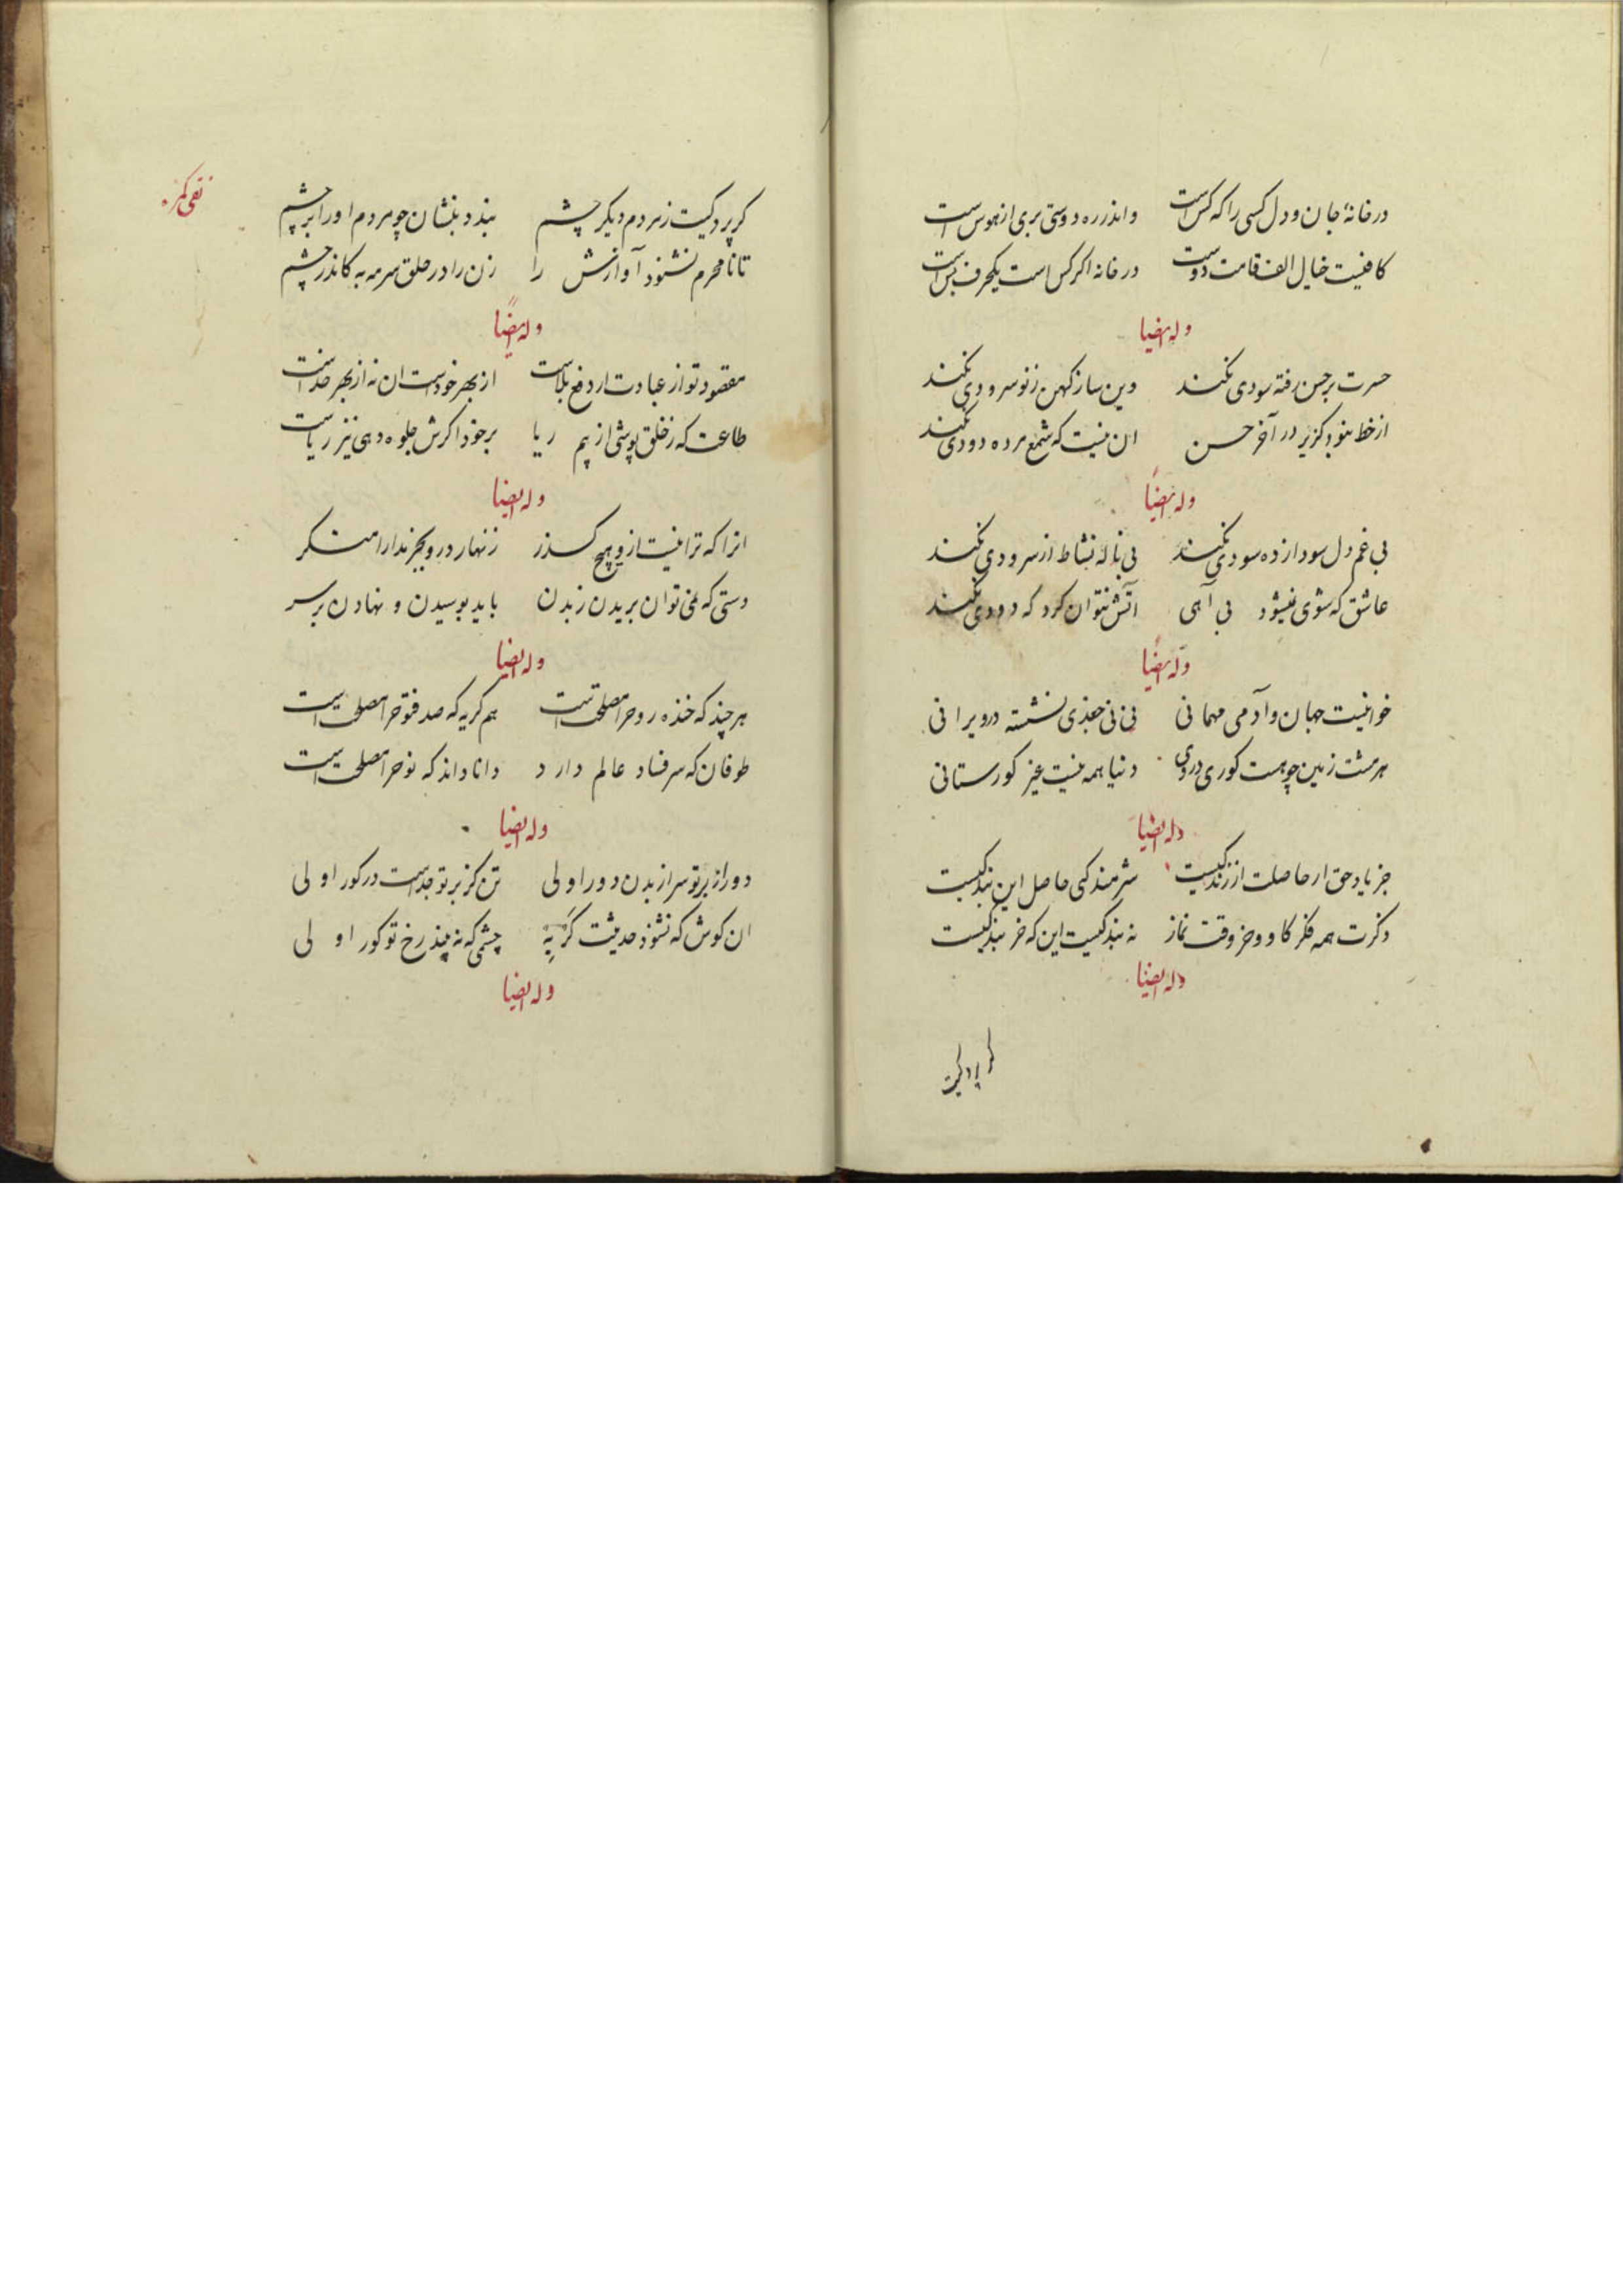 در خانهٔ جان و دل کسی را که کس است واندر ره دوستی بری از هوس است
کافیست خیال الف قامت دوست در خانه اکر کس است یکحرف بس است
وله ایضا
حسرت بر حسن رفته سودی نکند وین ساز کهن ز نو سرودی نکند
از خط نبود کزیر در آخر حسن ان نیست که شمع مرده دودی نکند
وله ایضاً
بی غم دل سودازده سودی نکند بی ناله نشاط از سرودی نکند
عاشق که شوی نمیشود بی آهی آتش نتوان کرد که دودی نکند
وله ایضاً
خوانیست جهان و آدمی مهمانی نی نی جغذی نشسته در ویرانی
هر مشت زمین چو هست کوری در وی دنیا همه نیست غیر کورستانی
وله ایضا
جز یاد حق ار حاصلت از زندکیست شرمندکی حاصل این بندکیست
ذکرت همه فکر کاو و خر وقت نماز نه بندکیست این که خر بندکیست
وله ایضا
کر پردکیت
تقی
کر پردکیت ز مردم دیکر چشم بندد بنشان چو مردم او را بر چشم
تا نامحرم نشنود آوازش را زن را در حلق سرمه به کاندر چشم
وله ایضاً
مقصود تو از عبادت ار دفع بلاست از بهر خودست ان نه از بهر خداست
طاعت که ز خلق پوشی از بیم ریا بر خود اکرش جلوه دهی نیز ریاست
وله ایضا
انرا که ترا نیست ازو هیچ کذر زنهار درو بجز مدارا منکر
دستی که نمی توان بریدن ز بدن باید بوسیدن و نهادن بر سر
وله ایضا
هر چند که خنده روح را مصلحت است هم کریه که صد فتوح را مصلحت است
طوفان که سر فساد عالم دارد دانا داند که نوح را مصلحت است
وله ایضا
دور از بر تو سر از بدن دور اولی تن کز بر تو جداست در کور اولی
ان کوش که نشنود حدیثت کر به چشمی که نه بیند رخ تو کور اولی
وله ایضا